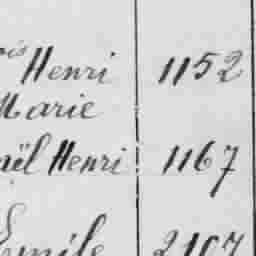 ois Henri 1152
Marie
aël Henri 1167
Emile 2107